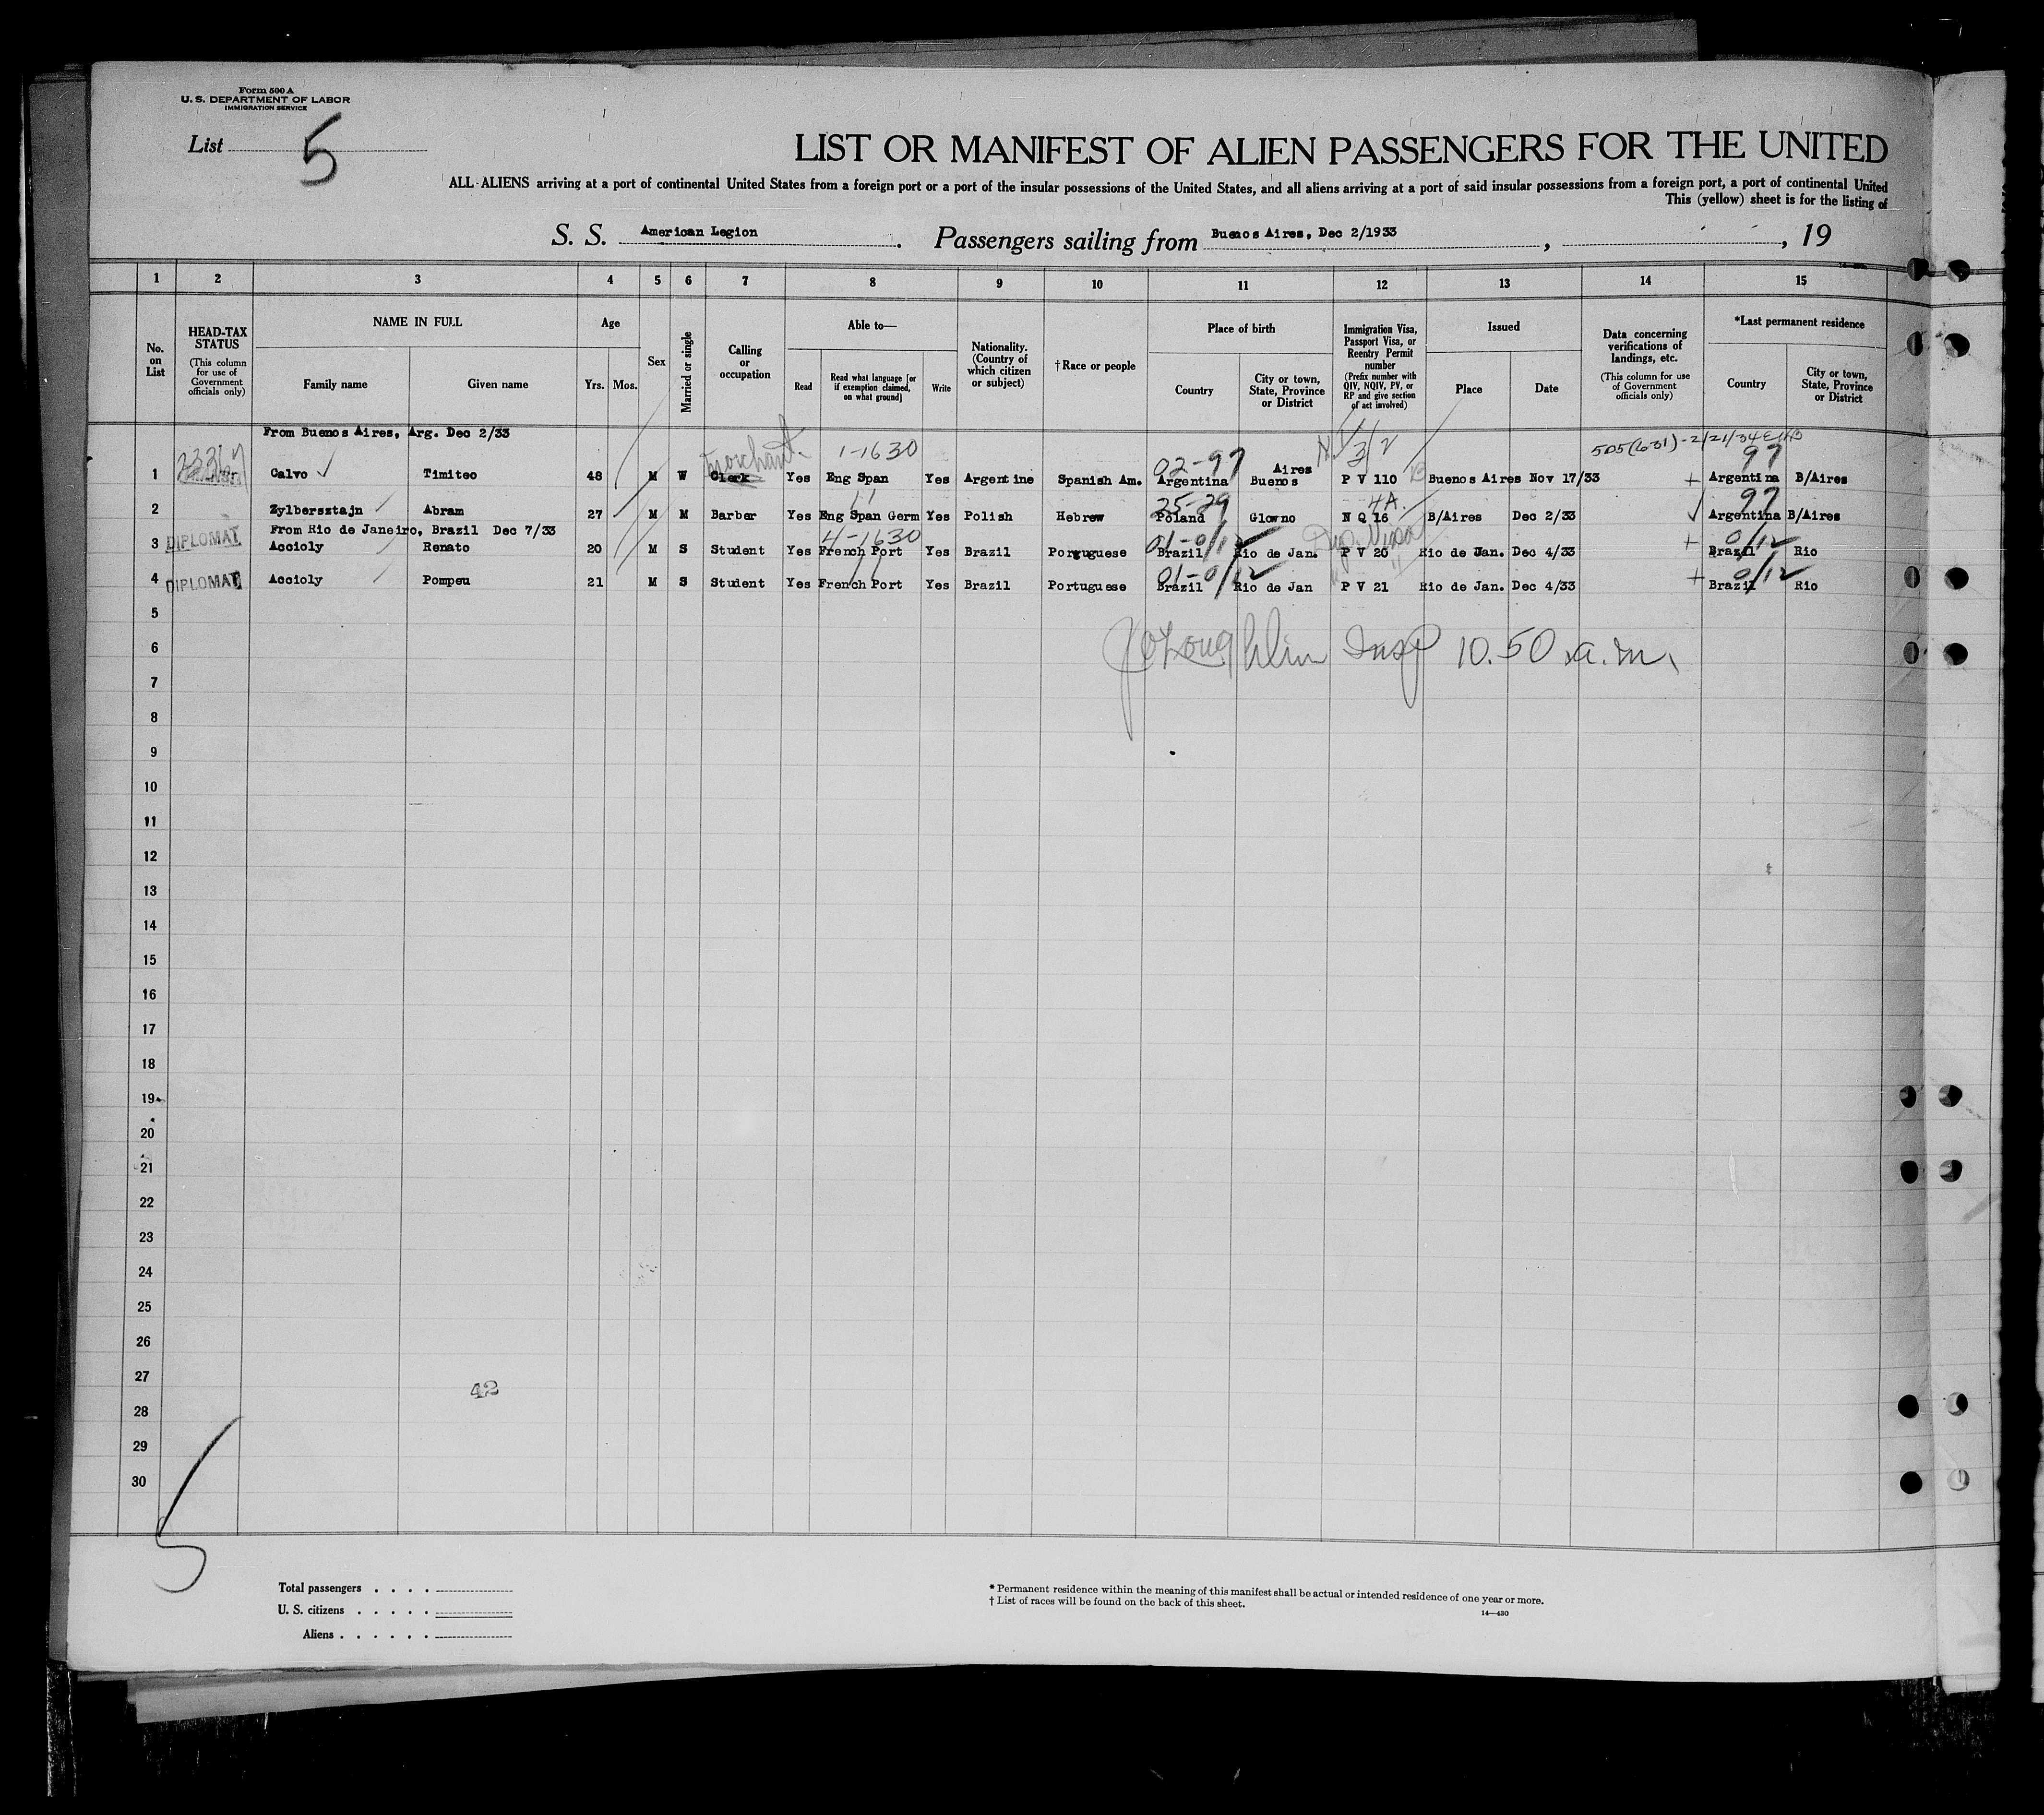 Form 500 A
U. S. DEPARTMENT OF LABOR
IMMIGRATION SERVICE
List 5
LIST OR MANIFEST OF ALIEN PASSENGERS FOR THE UNITED
ALL ALIENS arriving at a port of continental United States from a foreign port or a port of the insular possessions of the United States, and all aliens arriving at a port of said insular possessions from a foreign port, a port of continental United
This (yellow) sheet is for the listing of
S. S. American Legion. Passengers sailing from Buenos Aires, Dec 2/1933, , 19
1 2 3 4 5 6 7 8 9 10 11 12 13 14 15
No. on List
HEAD-TAX STATUS (This column for use of Government officials only)
NAME IN FULL
Family name Given name
Age
Yrs. Mos.
Sex
Married or single
Calling or occupation
Able to—
Read Read what language [or if exemption claimed, on what ground] Write
Nationality. (Country of which citizen or subject)
†Race or people
Place of birth
Country City or town, State, Province or District
Immigration Visa, Passport Visa, or Reentry Permit number (Prefix number with QIV, NQIV, PV, or RP and give section of act involved)
Issued
Place Date
Data concerning verifications of landings, etc. (This column for use of Government officials only)
*Last permanent residence
Country City or town, State, Province or District
From Buenos Aires, Arg. Dec 2/33
Merchant 1-1630 02-97 3/2 97
1 Calvo Timiteo 48 M W Clerk Yes Eng Span Yes Argentine Spanish Am. Argentina Buenos Aires P V 110 Buenos Aires Nov 17/33 + Argentina B/Aires
25-29 4A. 97
2 Zylbersztajn Abram 27 M M Barber Yes Eng Span Germ Yes Polish Hebrew Poland Glowno N Q 16 B/Aires Dec 2/33 Argentina B/Aires
From Rio de Janeiro, Brazil Dec 7/33
4-1630 01-0/12 0/12
3 DIPLOMAT Accioly Renato 20 M S Student Yes French Port Yes Brazil Porguguese Brazil Rio de Jan. P V 20 Rio de Jan. Dec 4/33 + Brazil Rio
01-0/12 0/12
4 DIPLOMAT Accioly Pompeu 21 M S Student Yes French Port Yes Brazil Portuguese Brazil Rio de Jan P V 21 Rio de Jan. Dec 4/33 + Brazil Rio
5
6 Insp 10.50 a.m.
7
8
9
10
11
12
13
14
15
16
17
18
19
20
21
22
23
24
25
26
27
42
28
29
30
5
Total passengers . . . .
U. S. citizens . . . . .
Aliens . . . . . .
* Permanent residence within the meaning of this manifest shall be actual or intended residence of one year or more.
† List of races will be found on the back of this sheet.
14—430